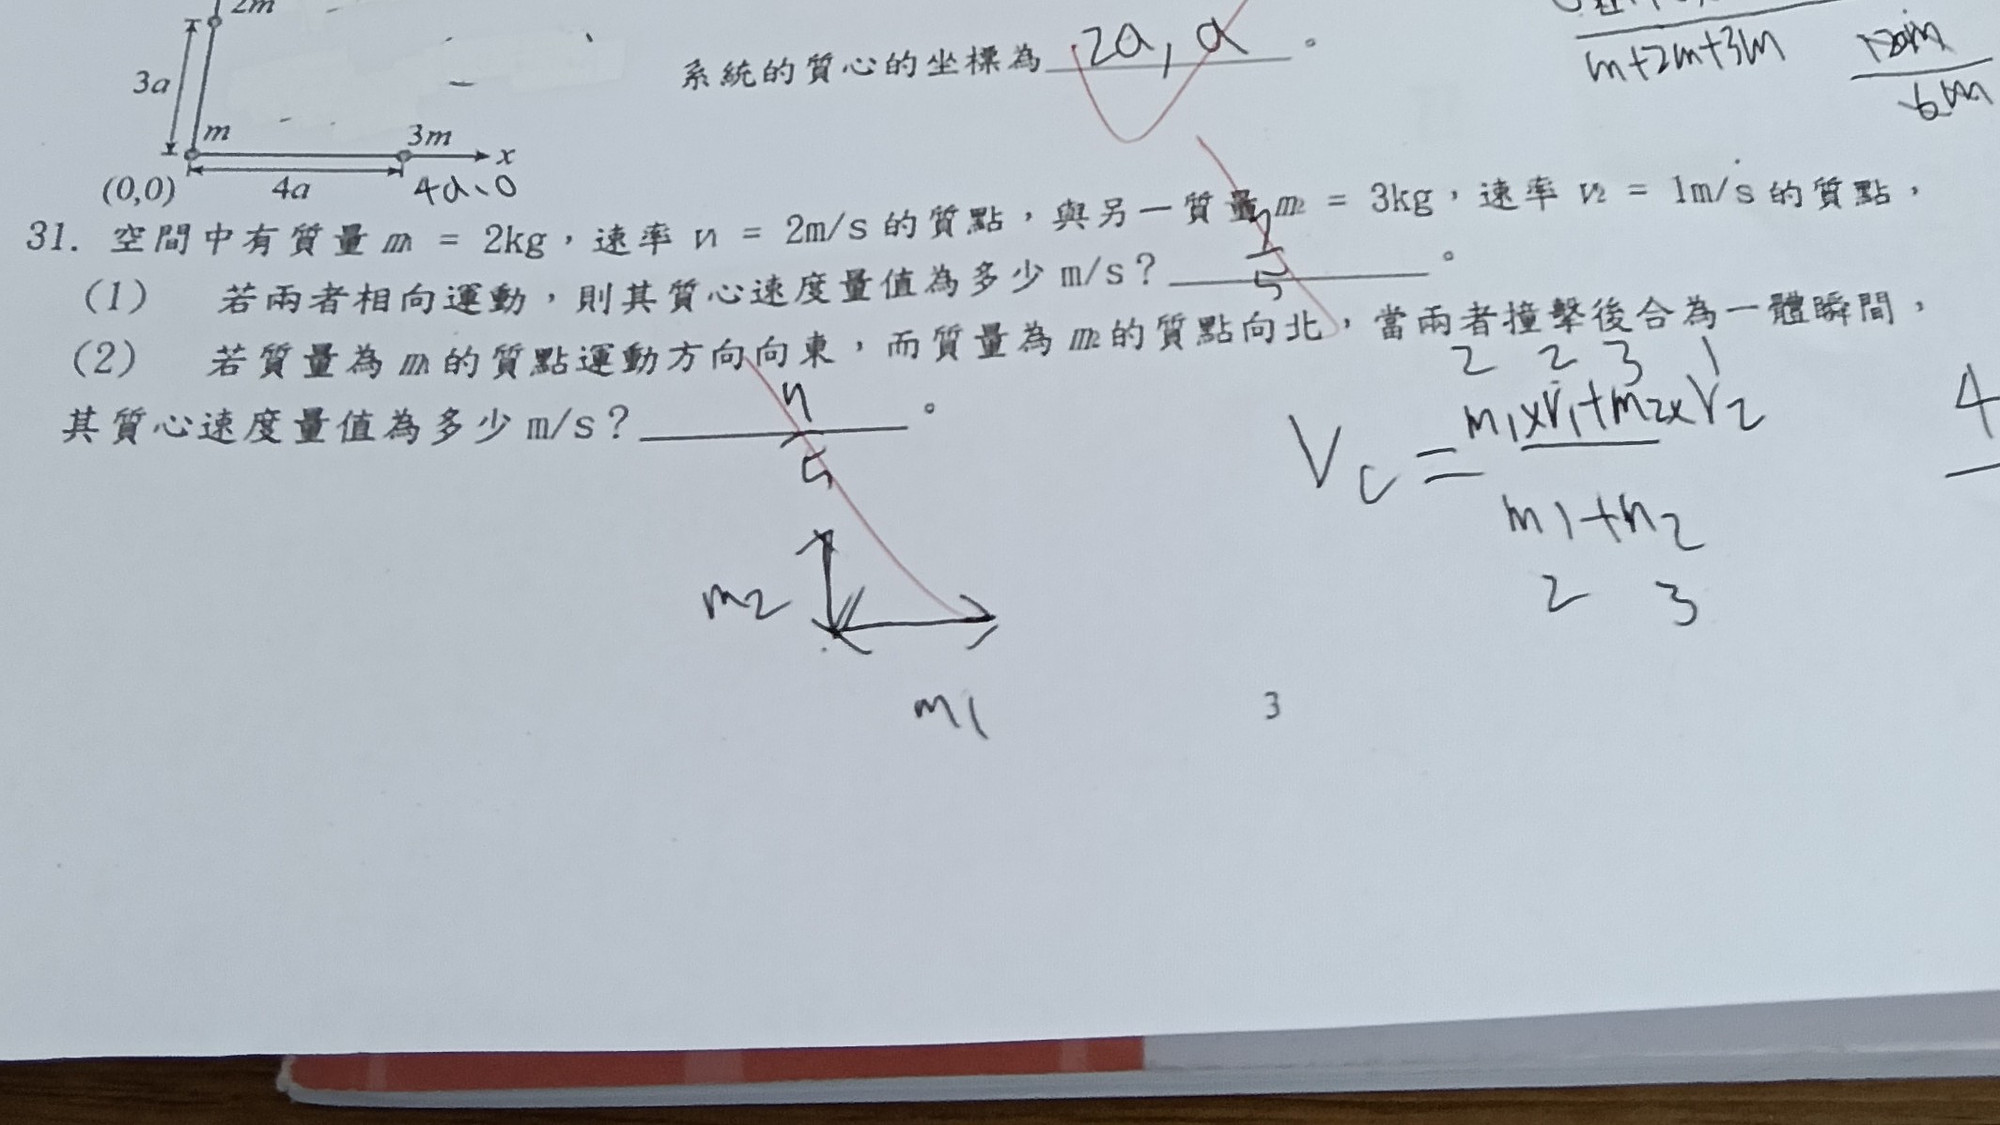 2m
3a
m
3m
x
(0,0)
4a
4a、0
系統的質心的坐標為 2a, a 。
m+2m+3m
12am
6m
31. 空間中有質量 m₁ = 2kg，速率 v₁ = 2m/s 的質點，與另一質量 m₂ = 3kg，速率 v₂ = 1m/s 的質點，
(1) 若兩者相向運動，則其質心速度量值為多少 m/s？ 。
5
(2) 若質量為 m₁ 的質點運動方向向東，而質量為 m₂ 的質點向北，當兩者撞擊後合為一體瞬間，
其質心速度量值為多少 m/s？ 。
5
2 2 3 1
Vc = m1xV1+m2xV2
m1+m2
2 3
4
m2
m1
3